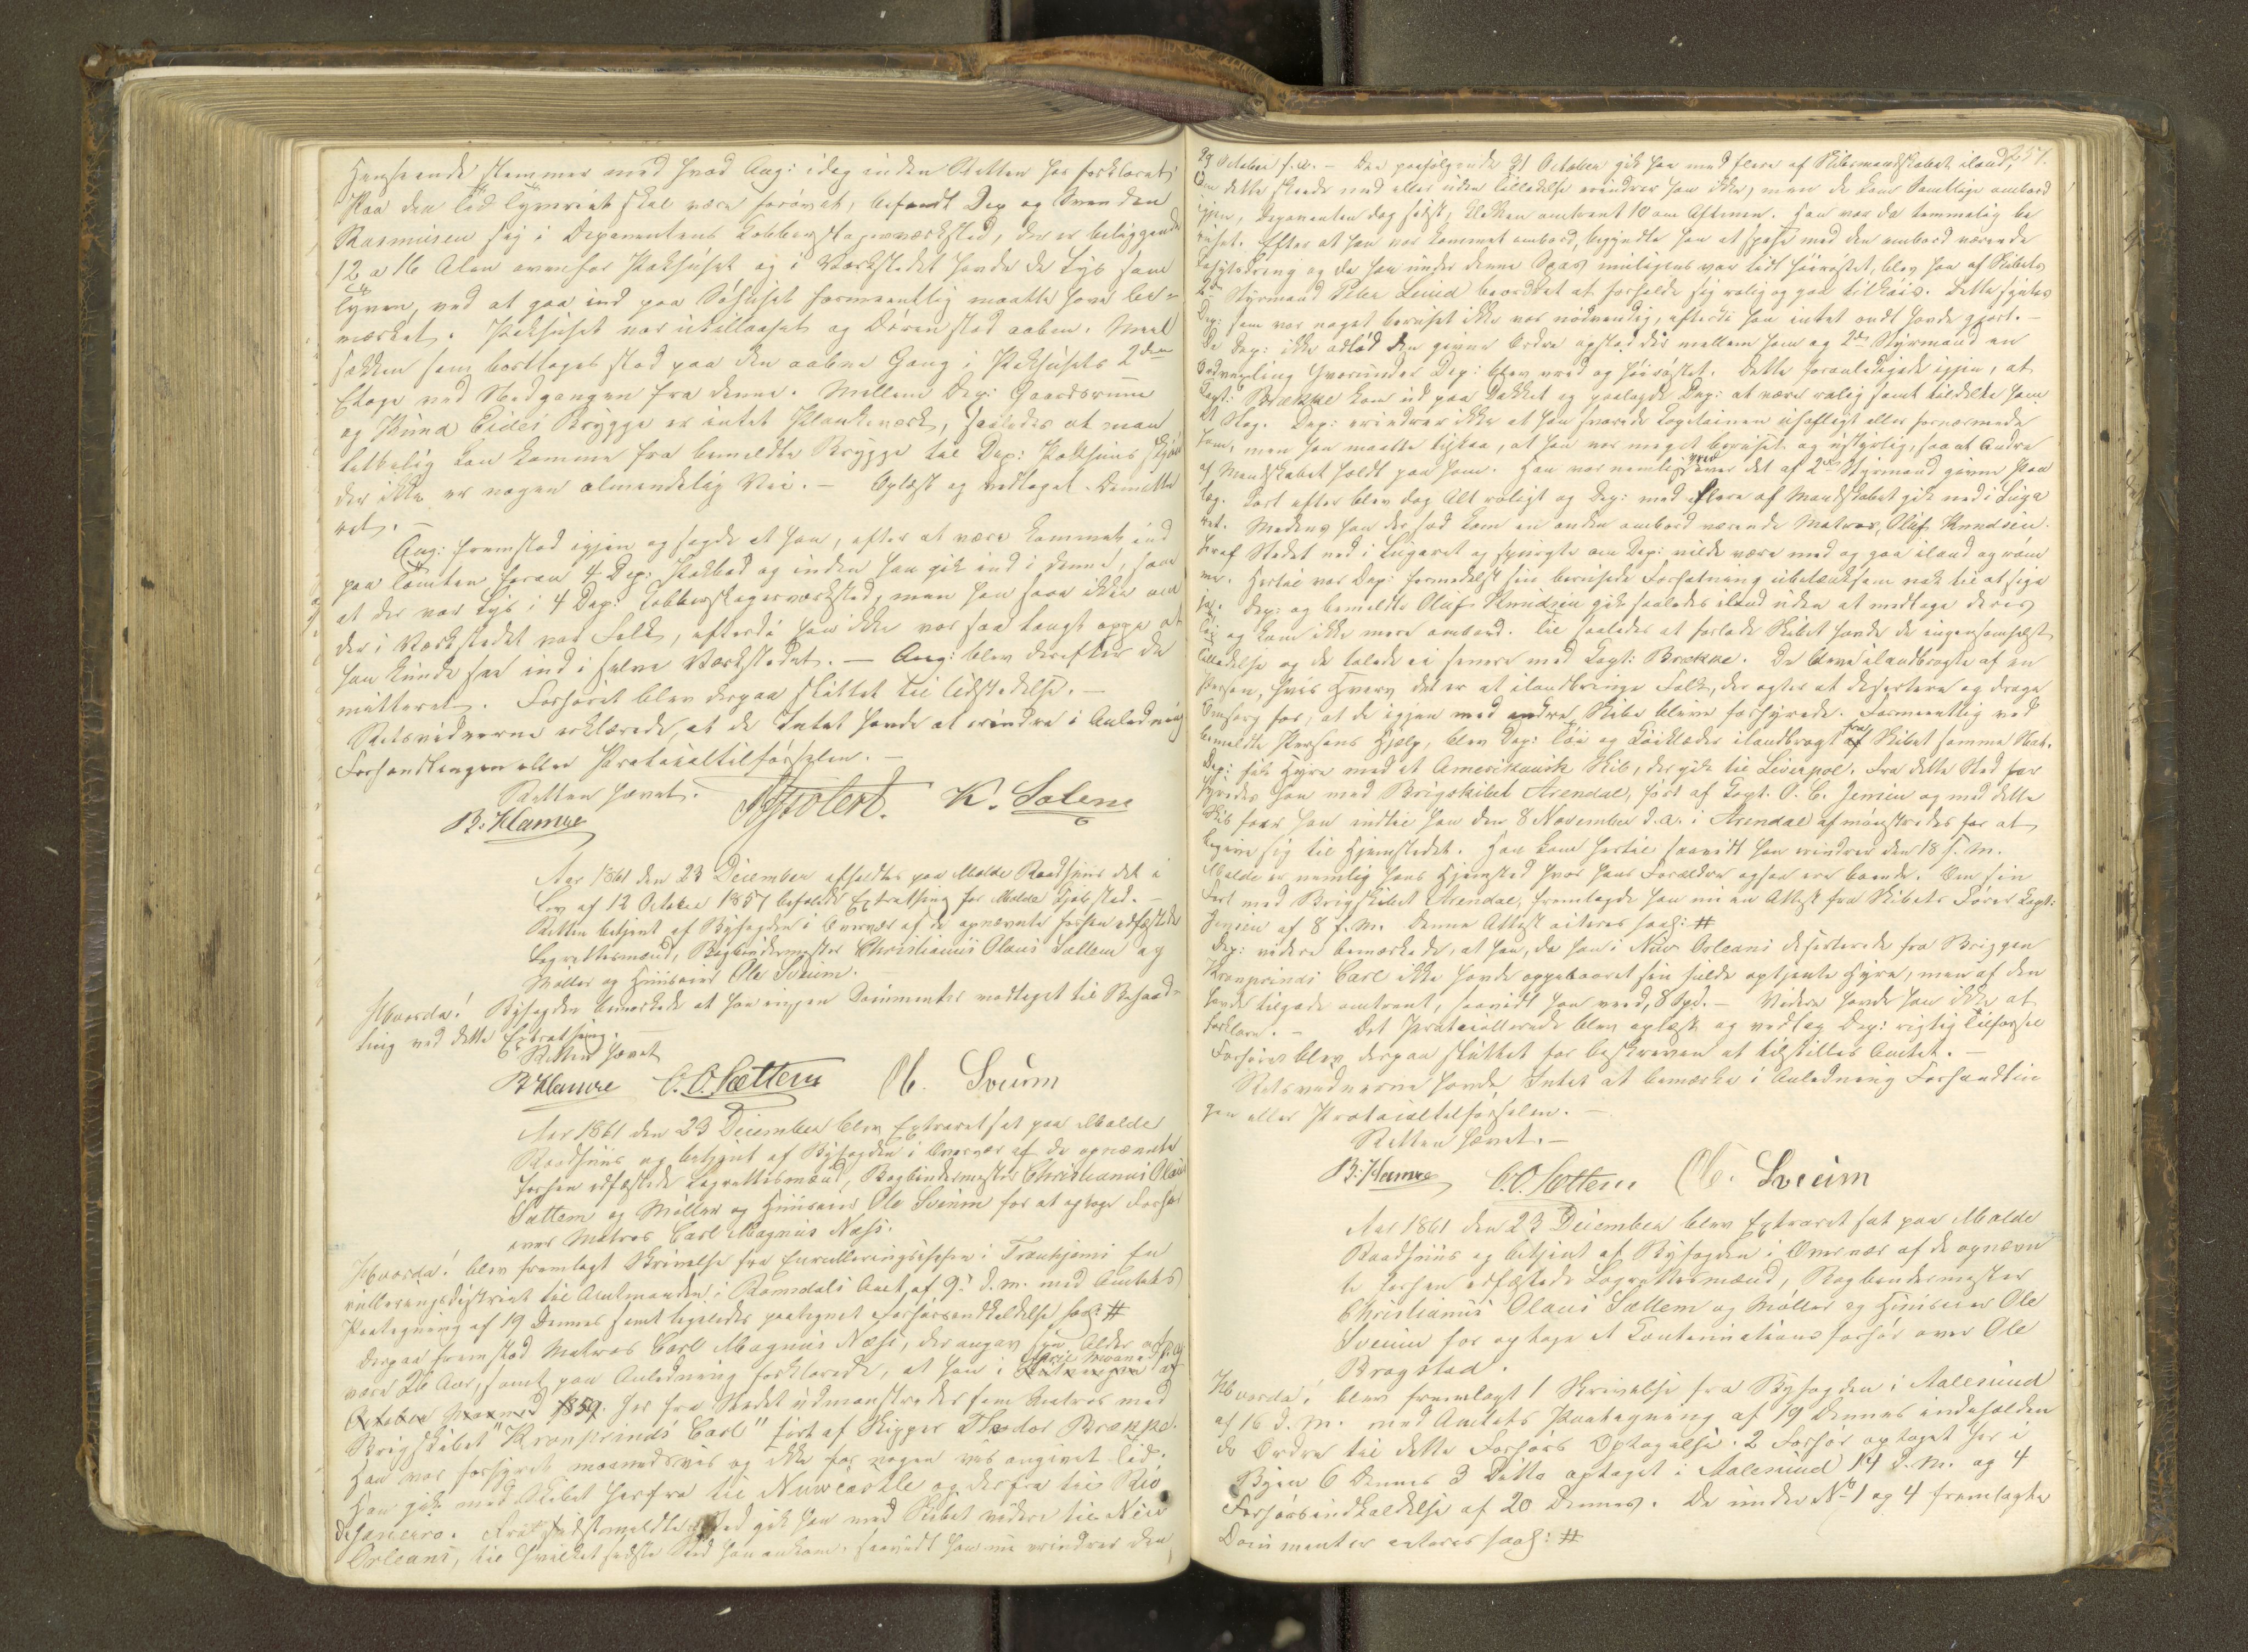 Henseende stemmer med hvad Ang: idag inden Retten har forklaret.
Paa den Tid Tyveriet skal være forøvet, befandt Dep og Svenden
Rasmussen sig i Deponentens Kobberslagerværksted, der er beliggende
12 a 16 Alen ovenfor Pakhuset og i Værkstedet havde de Lys som
Tyven, ved at gaa ind paa Søhuset formeentlig maatte have be-
mærket. Pakhuset var utillaaset og Døren stod aaben. Meel
sækken som borttoges stod paa den aabne Gang i Pakhusets 2den
Etage ved Nedgangen fra denne. Mellem Dep: Gaardsrum
og Knud Eides Brygge er intet Plankeværk, saaledes at man
letvelig kan komme fra bemeldte Brygge til Dep: Pakhuus skjønt
der ikke er nogen almindelig Vei. – Oplæst og vedtaget. Demitte
ret. –
Ang: fremstod igjen og sagde at han, efter at være kommet ind
paa Tomten foran 4 Dep: Pakbod og inden han gik ind i denne, saae
at der var Lys i 4 Dep: Kobberslagerværksted, men han saae ikke om
der i Værkstedet var Folk, efterdi han ikke var saa langt oppe at
han kunde see ind i selve Værkstedet. – Ang: blev derefter de
mitteret. Forhøret blev derpaa sluttet til Udstædelse. –
Retsvidnerne erklærede, at de Intet havde at erindre i Anledning
Forhandlingen eller Protocoltilførselen. –
Retten hævet.
B: Hamre K. Solem
Aar 1861 den 23 December afholdtes paa Molde Raadhuus det i
Lov af 12 October 1857 befalede Extrathing for Molde Kjøbsted. –
Retten betjent af Byfogden i Overvær af de opnævnte forhen edfæstede
Lagrettesmænd, Bogbindermester Christianus Olaus Sættem og
Møller og Huuseier Ole Sveum. –
Hvorda! Byfogden bemærkede at han ingen Documenter modtaget til Behand-
ling ved dette Extrathing. –
Retten hævet
B Hamre C. O. Sættem Ol. Sveum
Aar 1861 den 23 December blev Extraret sat paa Molde
Raadhuus og betjent af Byfogden i Overvær af de opnævnte
forhen edfæstede Lagrettesmænd, Bogbindermester Christianus Olaus
Sættem og Møller og Huuseier Ole Sveum for at optage Forhør
over Matros Carl Magnus Næss.
Hvorda! blev fremlagt Skrivelse fra Enrolleringschefen i Tronhjems En
rulleringsdistrict til Amtmanden i Romsdals Amt af 9. d. m. med Amtets
Paategning af 19 Dennes samt ligeledes paategnet Forhørsindkaldelse saal: #
Derpaa fremstod Matros Carl Magnus Næss, der angav sin Alder at
være 26 Aar, samt paa Anledning forklarede, at han i April Maaned f. a.
October Maaned 1859. her fra Stedet udmønstredes som Matros med
Brigskibet "Kronprinds Carl" ført af Skipper Theodor Brække.
Han var forhyret maanedsviis og ikke for nogen vis angivet Tid.
Han gik med Skibet herfra til Newcastle og derfra til Rio
deJaneiro. Fra sidstmeldte Sted gik han med Skibet videre til New
Orleans, til hvilket sidste Sted han ankom, saavidt han nu erindrer den
257.
29 October f. a. – Den paafølgende 31 October gik han med flere af Skibsmandskabet iland,
om dette skeede med eller uden Tilladelse erindrer han ikke, men de kom Samtlige ombord
igjen, Deponenten dog sidst, Klokken omtrent 10 om Aftenen. Han var da temmelig be
ruset. Efter at han var kommet ombord, begyndte han at spase med den ombord værende
Kahytsdreng og da han under denne Spas muligens var lidt høirøstet, blev han af Skibets
2den Styrmand Peter Lund beordret at forholde sig rolig og gaa tilkøis. Dette syntes
Dep: som var noget beruset ikke var nødvendig, efterdi han intet ondt havde gjort. –
Da Dep: ikke adlød den givne Ordre opstod der mellem ham og 2den Styrmand en
Ordvexling hvorunder Dep: blev vred og høirøstet. Dette foranledigede igjen, at
Capt: Brække kom ud paa Dækket og paalagde Dep: at være rolig samt tildelte ham
et Slag. Dep: erindrer ikke at han svarede Capitainen uhøfligt eller fornærmede
ham, men han maatte tilstaa, at han var meget beruset og ustyrlig, saa at Andre
af Mandskabet holdt paa ham. Han var nemlig vred over det af 2den Styrmand givne Paa
læg. Kort efter blev dog Alt roligt og Dep: med flere af Mandskabet gik ned i Luga
ret. Medens han der sad kom en anden ombord værende Matros, Oluf Knudsen
hraf Stedet ned i Lugaret og spurgte om Dep: vilde være med og gaa iland og røm
me. Hertil var Dep: formedelst sin berusede Forfatning ubetænksom nok til at sige
ja. Dep: og bemeldte Oluf Knudsen gik saaledes iland uden at medtage deres
Tøi og kom ikke mere ombord. Til saaledes at forlade Skibet havde de ingensomhelst
Tilladelse og de talede ei heller med Capt: Brække. De bleve ilandbragte af en
Person, hvis Hverv det er at ilandbringe Folk, der agter at desertere og drage
Omsorg for, at de igjen med andre Skibe blive forhyrede. Formeentlig ved
bemeldte Persons Hjælp, blev Dep: Tøi og Køiklæder ilandbragt fra Skibet samme Nat.
Dep: fik Hyre med et Amerikansk Skib, der gik til Liverpol. Fra dette Sted for
hyredes han med Brigskibet Arendal, ført af Capt. O. C. Jensen og med dette
Skib foer han indtil han den 8 November d. a. i Arendal afmønstredes for at
begive sig til Hjemstedet. Han kom hertil saavidt han erindrer den 18 f. M.
Molde er nemlig hans Hjemsted hvor hans Forældre ogsaa ere boende. Om sin
Fart med Brigskibet Arendal, fremlagde han nu en Attest fra Skibets Fører Capt:
Jensen af 8 f. M. Denne Attest acteres saal: #
Dep: videre bemærkede, at han, da han i New Orleans desserterede fra Briggen
Kronprinds Carl ikke havde oppebaaret sin fulde optjente Hyre, men af den
havde tilgode omtrent, saavidt han veed, 8 Spd. – Videre havde han ikke at
forklare. – Det Protocollerede blev oplæst og vedtog Dep: rigtig Tilførsel
Forhøret blev derpaa sluttet for beskreven at tilstilles Amtet. –
Retsvidnerne havde Intet at bemærke i Anledning Forhandlin
gen eller Protocoltilførselen. –
Retten hævet. –
B: Hamre C. O. Sættem Ol. Sveum
Aar 1861 den 23 December blev Extraret sat paa Molde
Raadhuus og betjent af Byfogden i Overvær af de opnævn
te forhen edfæstede Lagrettesmænd, Bogbindermester
Christianus Olaus Sættem og Møller og Huuseier Ole
Sveum for optage et Continuationsforhør over Ole
Bragstad.
Hvorda! blev fremlagt 1 Skrivelse fra Byfogden i Aalesund
af 16 d. M. med Amtets Paategning af 19 Dennes indeholden
de Ordre til dette Forhørs Optagelse. 2 Forhør optaget her i
Byen 6 Dennes 3 Ditto optaget i Aalesund 14 d. M. og 4
Forhørsindkaldelse af 20 Dennes. De under No 1 og 4 fremlagte
Documenter acteres saal: #